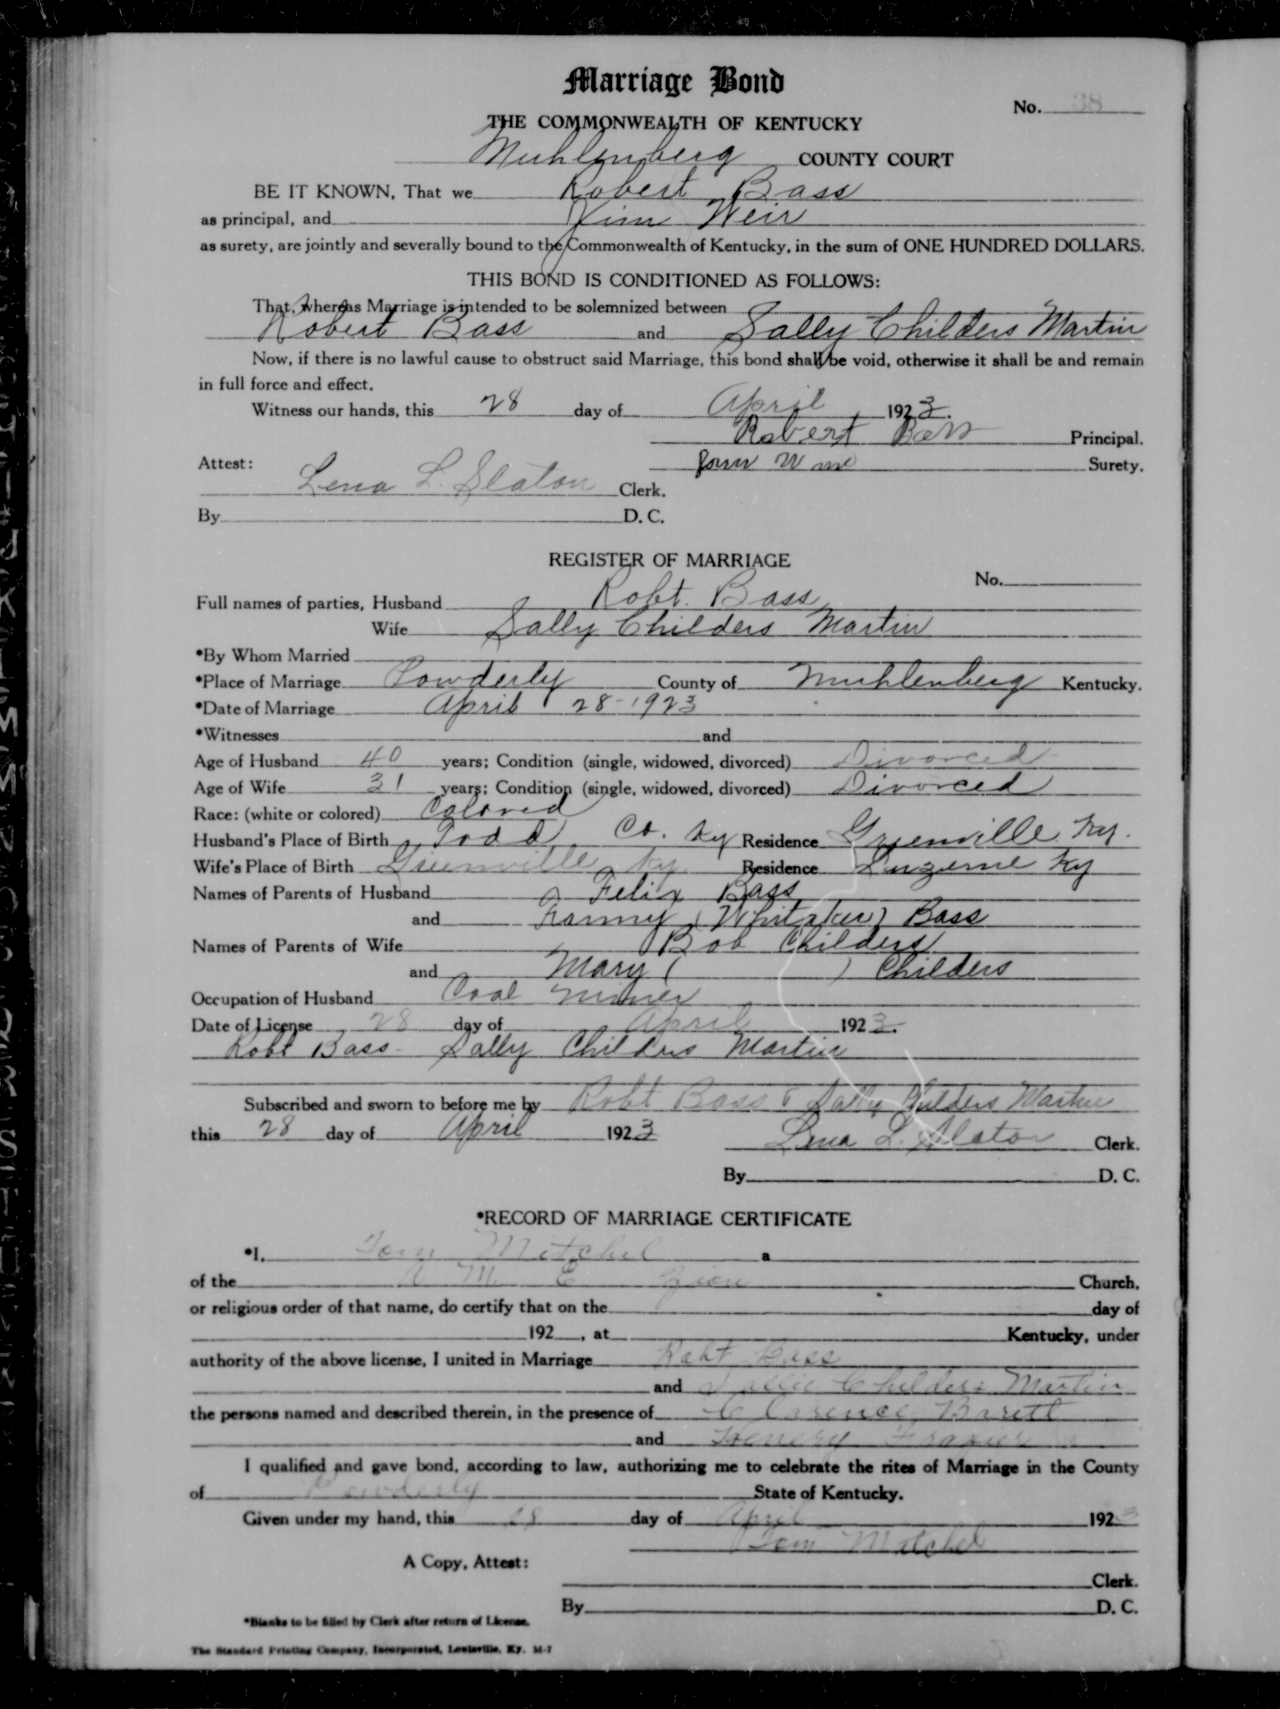 Marriage Bond
No. 38
THE COMMONWEALTH OF KENTUCKY
Muhlenberg COUNTY COURT
BE IT KNOWN, That we Robert Bass
as principal, and Jim Weir
as surety, are jointly and severally bound to the Commonwealth of Kentucky, in the sum of ONE HUNDRED DOLLARS.
THIS BOND IS CONDITIONED AS FOLLOWS:
That, whereas Marriage is intended to be solemnized between
Robert Bass and Sally Childers Martin
Now, if there is no lawful cause to obstruct said Marriage, this bond shall be void, otherwise it shall be and remain
in full force and effect.
Witness our hands, this 28 day of April, 1923.
Robert Bass Principal.
Attest: Surety.
Lena L. Slaton Clerk.
By D. C.
REGISTER OF MARRIAGE
No.
Full names of parties, Husband Robt. Bass
Wife Sally Childers Martin
*By Whom Married
*Place of Marriage Powderly County of Muhlenberg Kentucky.
*Date of Marriage April 28-1923
*Witnesses and
Age of Husband 40 years; Condition (single, widowed, divorced) Divorced
Age of Wife 31 years; Condition (single, widowed, divorced) Divorced
Race: (white or colored) Colored
Husband's Place of Birth Todd Co. Ky Residence Greenville Ky.
Wife's Place of Birth Greenville Ky. Residence Luzerne Ky
Names of Parents of Husband Felix Bass
and Fanny (Whitaker) Bass
Names of Parents of Wife Bob Childers
and Mary ( ) Childers
Occupation of Husband Coal Miner
Date of License 28 day of April 1923.
Robt Bass - Sally Childers Martin
Subscribed and sworn to before me by Robt Bass & Sally Childers Martin
this 28 day of April 1923
Lena L. Slaton Clerk.
By D. C.
*RECORD OF MARRIAGE CERTIFICATE
*I, Tom Mitchel a
of the A M E Zion Church,
or religious order of that name, do certify that on the day of
192 , at Kentucky, under
authority of the above license, I united in Marriage Robt Bass
and Sallie Childers Martin
the persons named and described therein, in the presence of Clarence Barett
and Henery Frazier
I qualified and gave bond, according to law, authorizing me to celebrate the rites of Marriage in the County
of Powderly State of Kentucky.
Given under my hand, this 28 day of April 1923
Tom Mitchel
A Copy, Attest:
Clerk.
By D. C.
*Blanks to be filled by Clerk after return of License.
The Standard Printing Company, Incorporated, Louisville, Ky. M-7